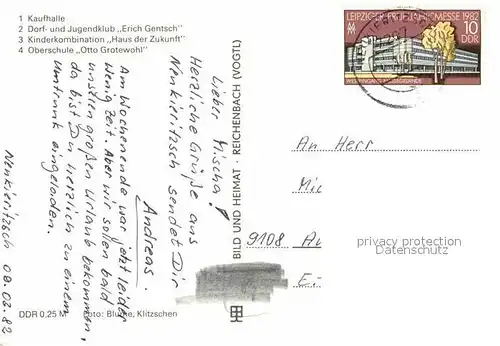 1 Kaufhalle
2 Dorf- und Jugendklub „Erich Gentsch"
3 Kinderkombination „Haus der Zukunft"
4 Oberschule „Otto Grotewohl"
Lieber Mischa!
Herzliche Grüße aus
Neukieritzsch sendet Dir
Andreas.
Am Wochenende war jetzt leider
wenig Zeit. Aber wir sollen bald
unseren großen Urlaub bekommen,
da bist Du herzlich zu einem
Umtrunk eingeladen.
Neukieritzsch 08.02.82
DDR 0,25 M Foto: Blume, Klitzschen
BILD UND HEIMAT · REICHENBACH (VOGTL)
LEIPZIGER FRÜHJAHRSMESSE 1982
10
DDR
WESTEINGANG MESSEGELÄNDE
An Herr
Mic
9108
E
privacy protection
Datenschutz